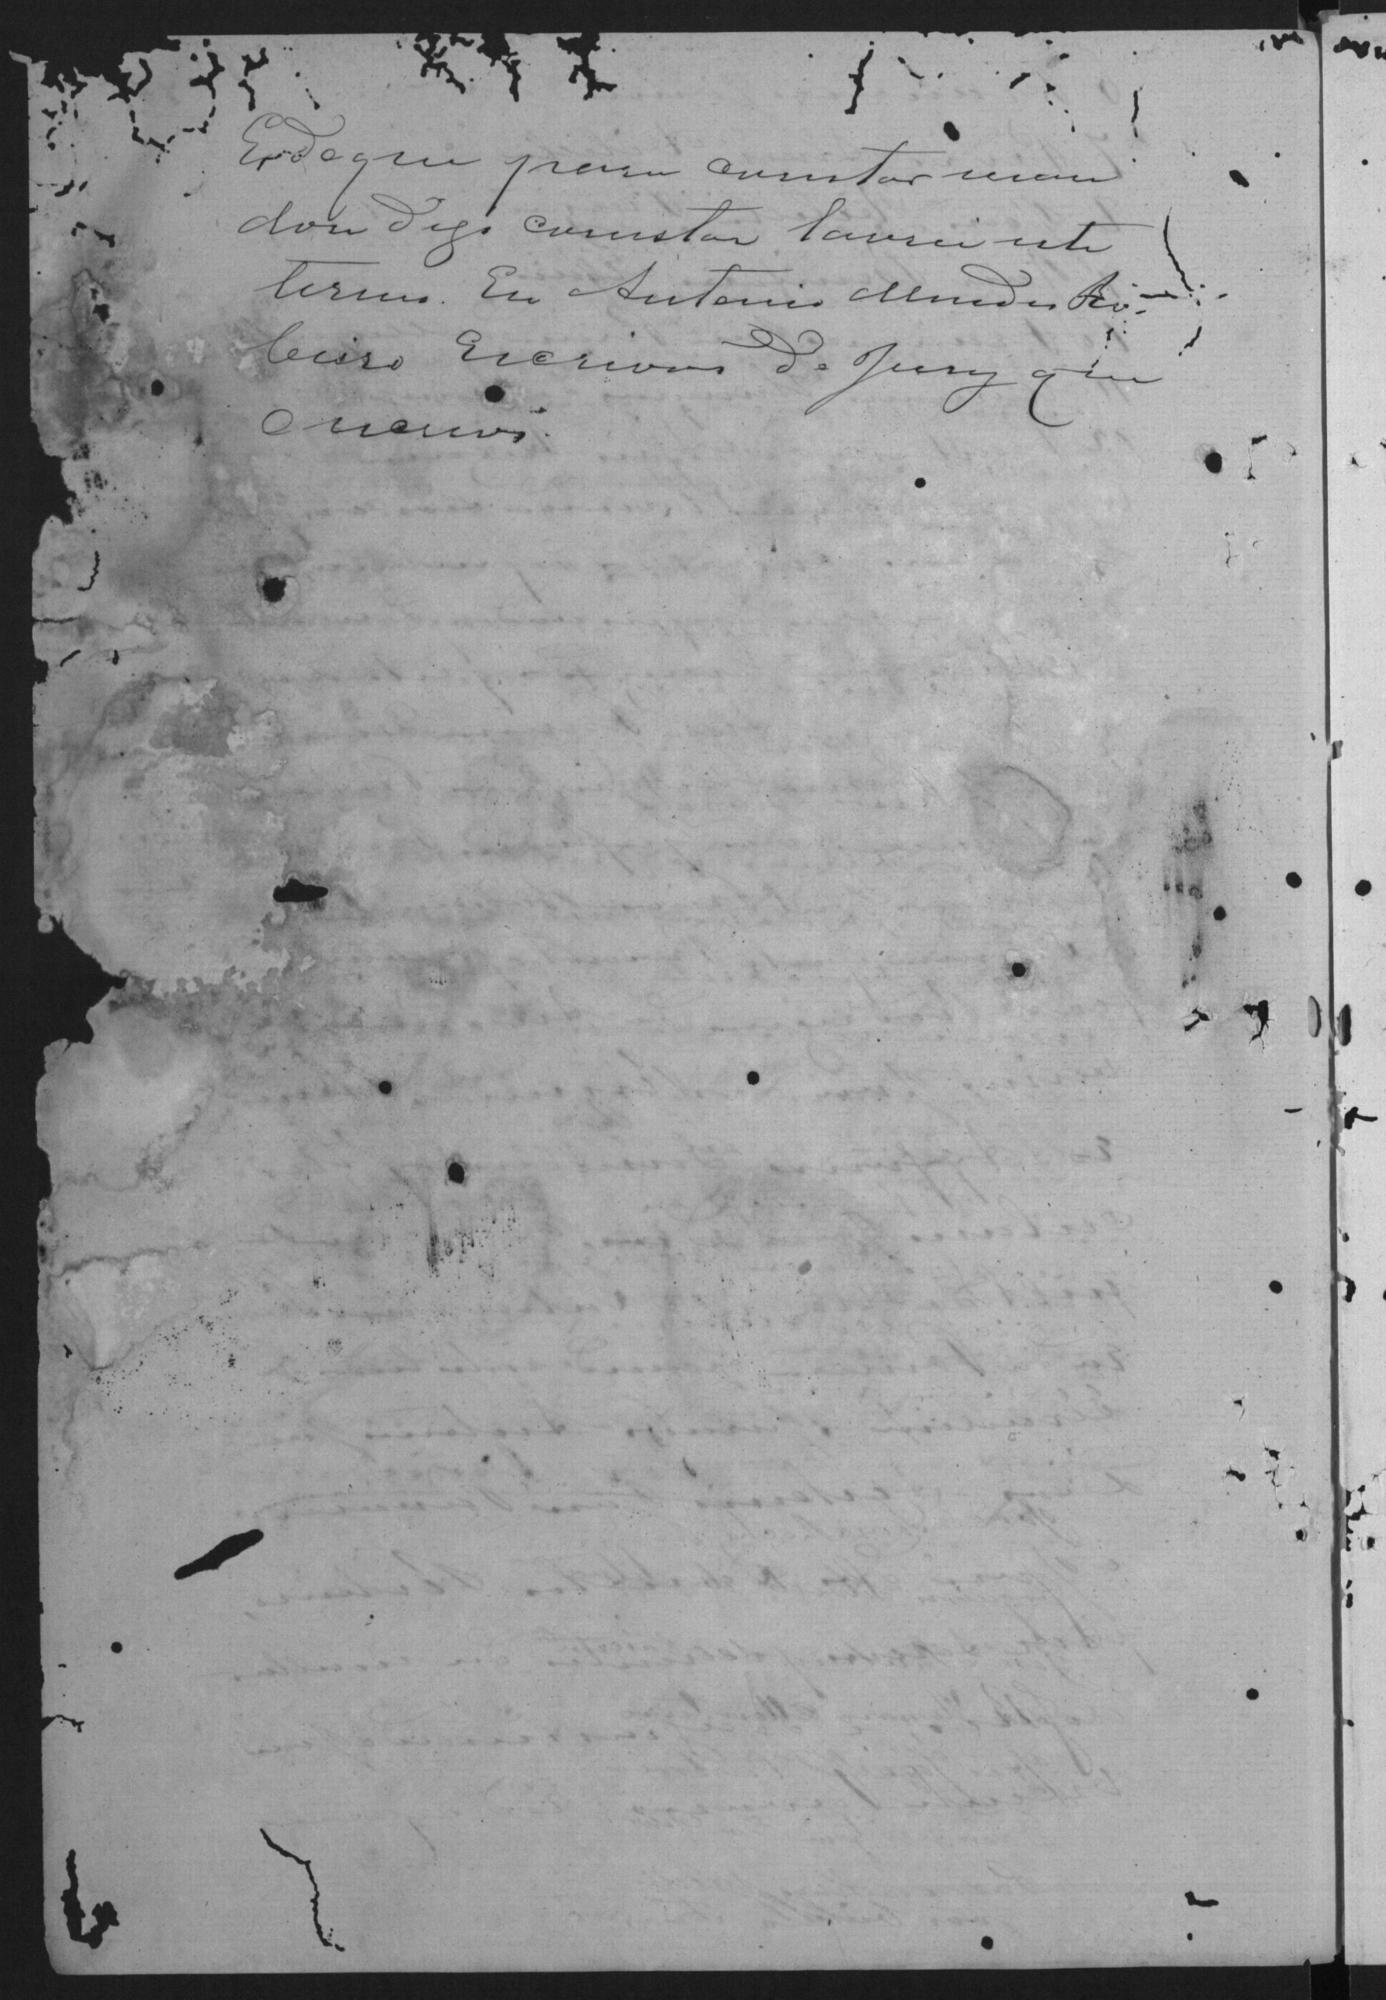 E de que para constar man
dou digo constar lavrei este
termo. Eu Antonio Mendes Ri-
beiro Escrivão do Jury que
o escrevi.